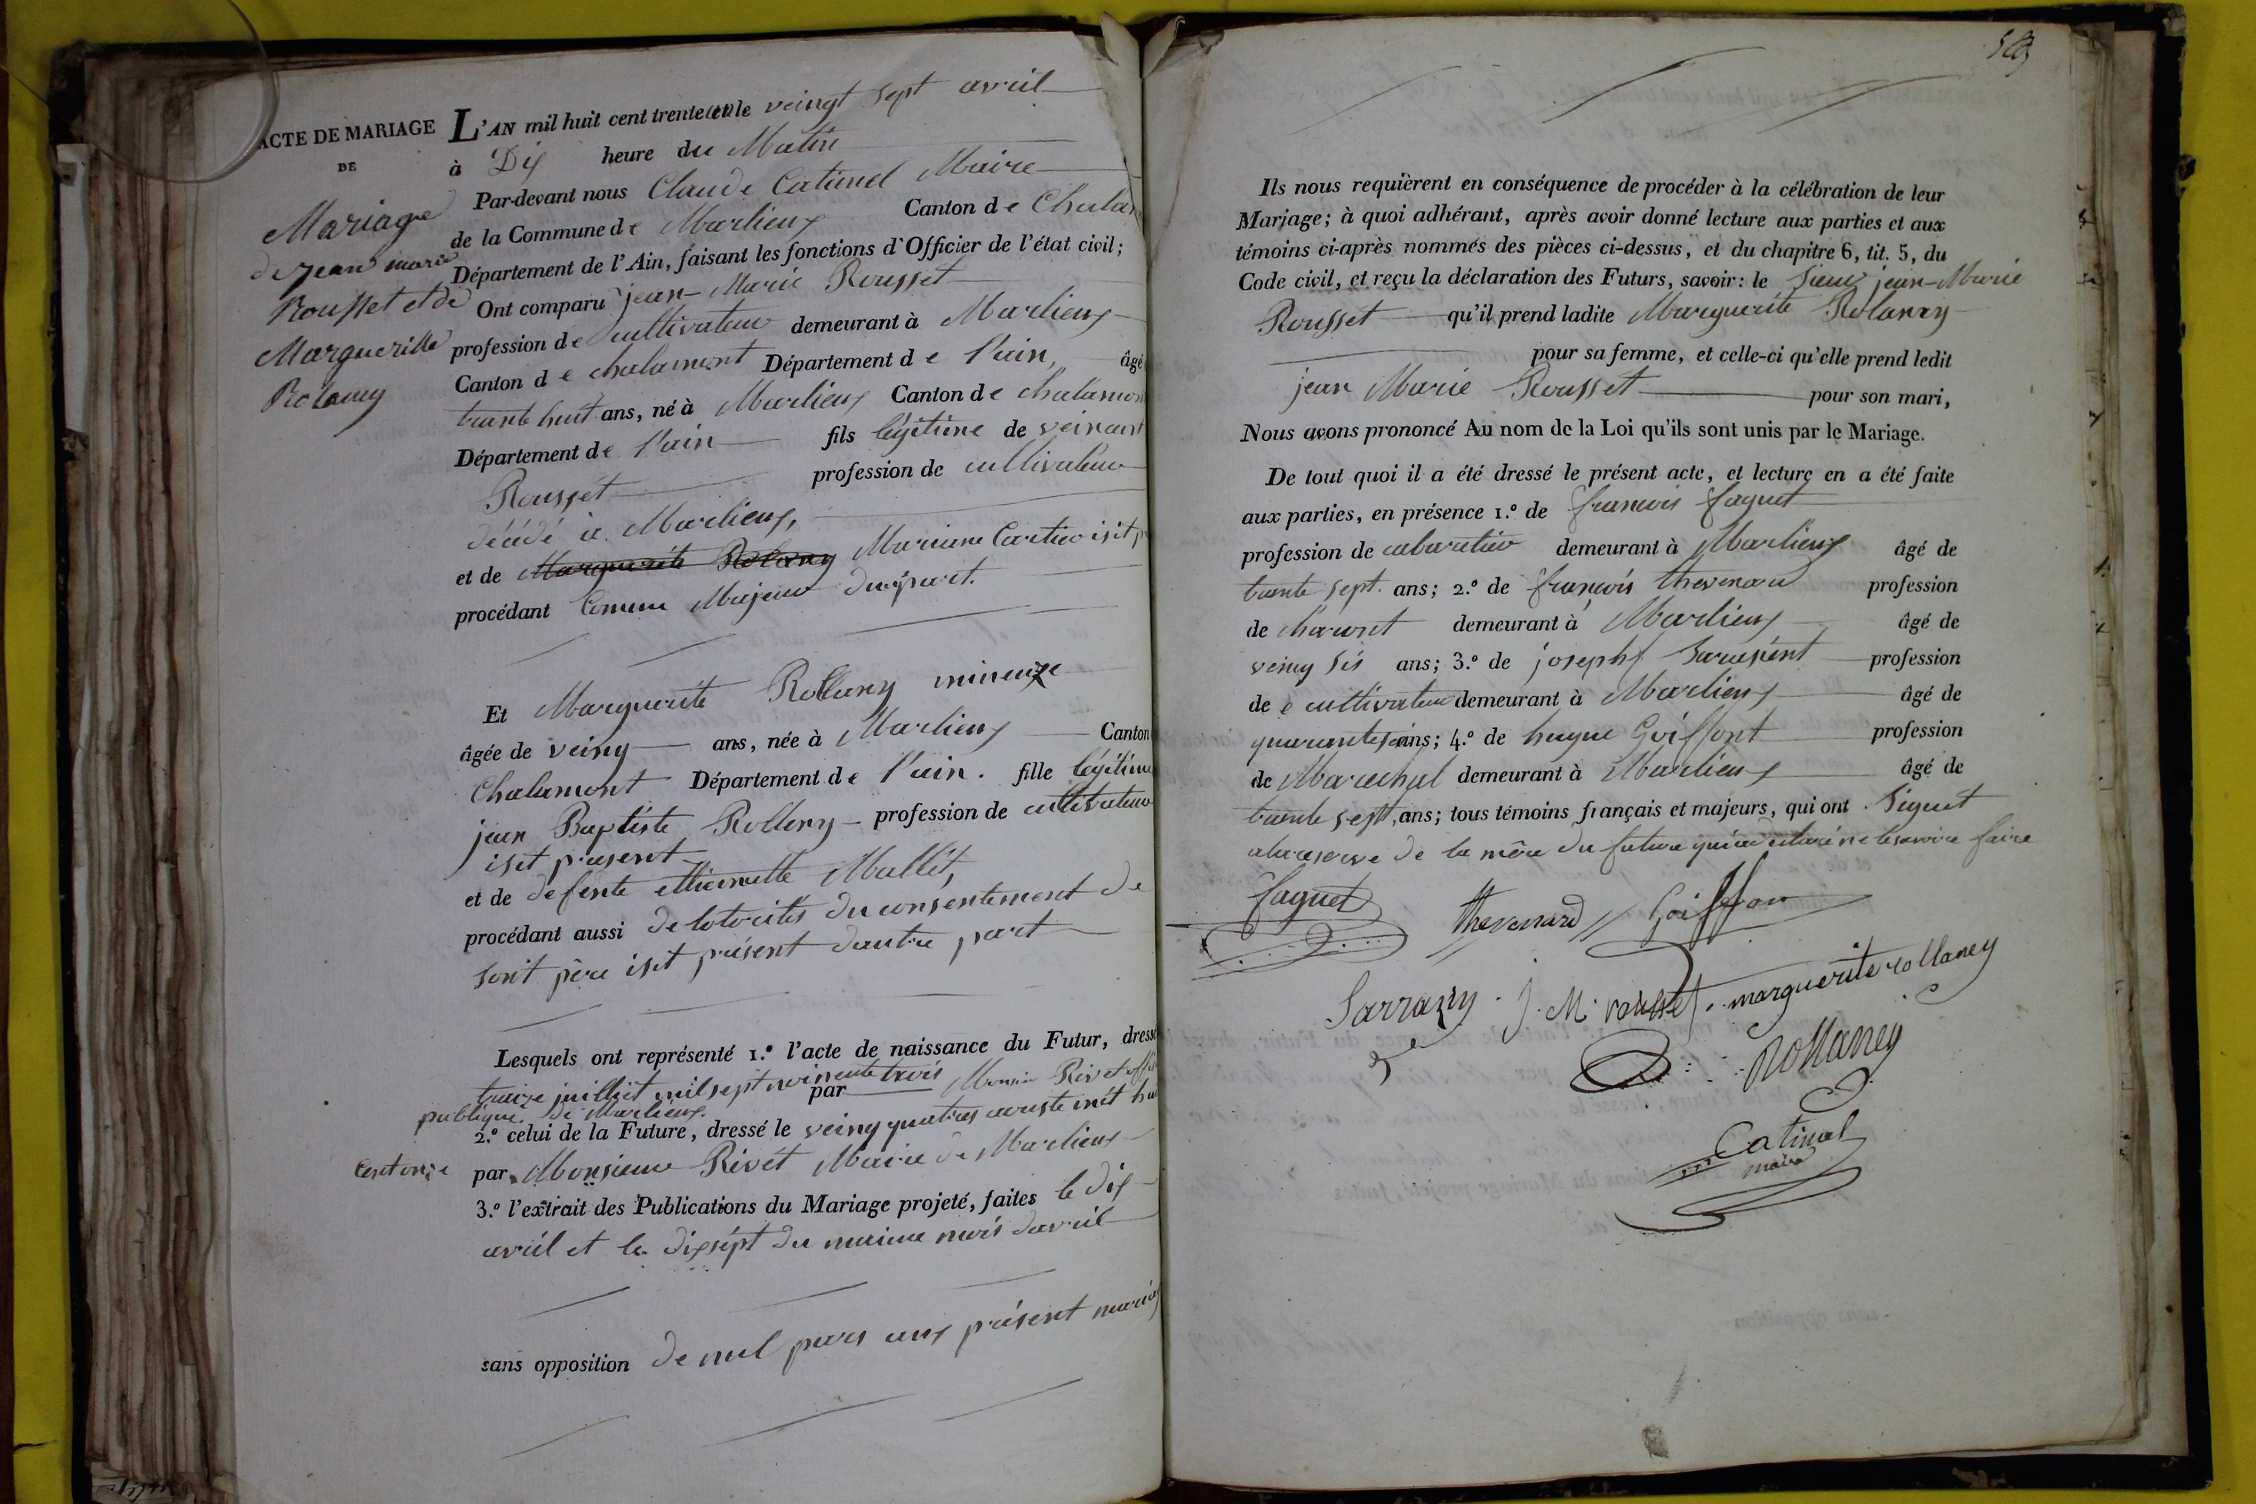 ACTE DE MARIAGE
DE
Mariage
de jean marie
Rousset et de
Margueritte
Rolaney
L'AN mil huit cent trente et un le veingt sept avril
à Dix heure du Matin
Par-devant nous Claude Catinel Maire
de la Commune de Marlieux Canton de Chalam
Département de l'Ain, faisant les fonctions d'Officier de l'état civil;
Ont comparu jean-Marie Rousset
profession de cultivateur demeurant à Marlieux
Canton de chalamont Département de l'ain, âgé
trante huit ans, né à Marlieux Canton de chalamon
Département de l'ain fils légitime de veincent
Rousset profession de cultivateur
décédé à Marlieux,
et de Marguerite Rolany Mariane Cartier isit p
procédant comme Majeur dunepart.
Et Marguerite Rollany mineuze
âgée de veing ans, née à Marlieux Canton
Chalamont Département de l'ain. fille légitime
jean Baptiste Rollony profession de cultivateur
isit present
et de defente ettiennette Mallet,
procédant aussi de lotorites du consentement de
sont père isit présent dautre part
Lesquels ont représenté 1.º l'acte de naissance du Futur, dressé
traize juilliet mil sept noinente trois par Monsieur Rivet offi
publique de Marlieux.
2.º celui de la Future, dressé le veing quatres aouste mil hui
cent onze par Monsieur Rivet Maire de Marlieux
3.º l'extrait des Publications du Mariage projeté, faites le dix
avril et le dix sept du maime mois davril
sans opposition de nul pars aux présent mariag
Ils nous requièrent en conséquence de procéder à la célébration de leur
Mariage; à quoi adhérant, après avoir donné lecture aux parties et aux
témoins ci-après nommés des pièces ci-dessus, et du chapitre 6, tit. 5, du
Code civil, et reçu la déclaration des Futurs, savoir: le Sieur jean-Marie
Rousset qu'il prend ladite Marguerite Rolanny
pour sa femme, et celle-ci qu'elle prend ledit
jean Marie Rousset pour son mari,
Nous avons prononcé Au nom de la Loi qu'ils sont unis par le Mariage.
De tout quoi il a été dressé le présent acte, et lecture en a été faite
aux parties, en présence 1.º de francois faguet
profession de cabaretier demeurant à Marlieux âgé de
trante sept. ans; 2.º de françois thevenard profession
de charont demeurant à Marlieux âgé de
veing sis ans; 3.º de joseph profession
de cultivateur demeurant à Marlieux âgé de
ans; 4.º de hugue Goiffont profession
de Marechal demeurant à Marlieux âgé de
trante sept, ans; tous témoins français et majeurs, qui ont Signet
alareserve de la mère du future quia déclaré ne le savoire faire
faguet thevenard Goiffon
Sarrazin J. M. rousset. marguerite rollaney
Rollaney
Catinel
maire
sans opposition